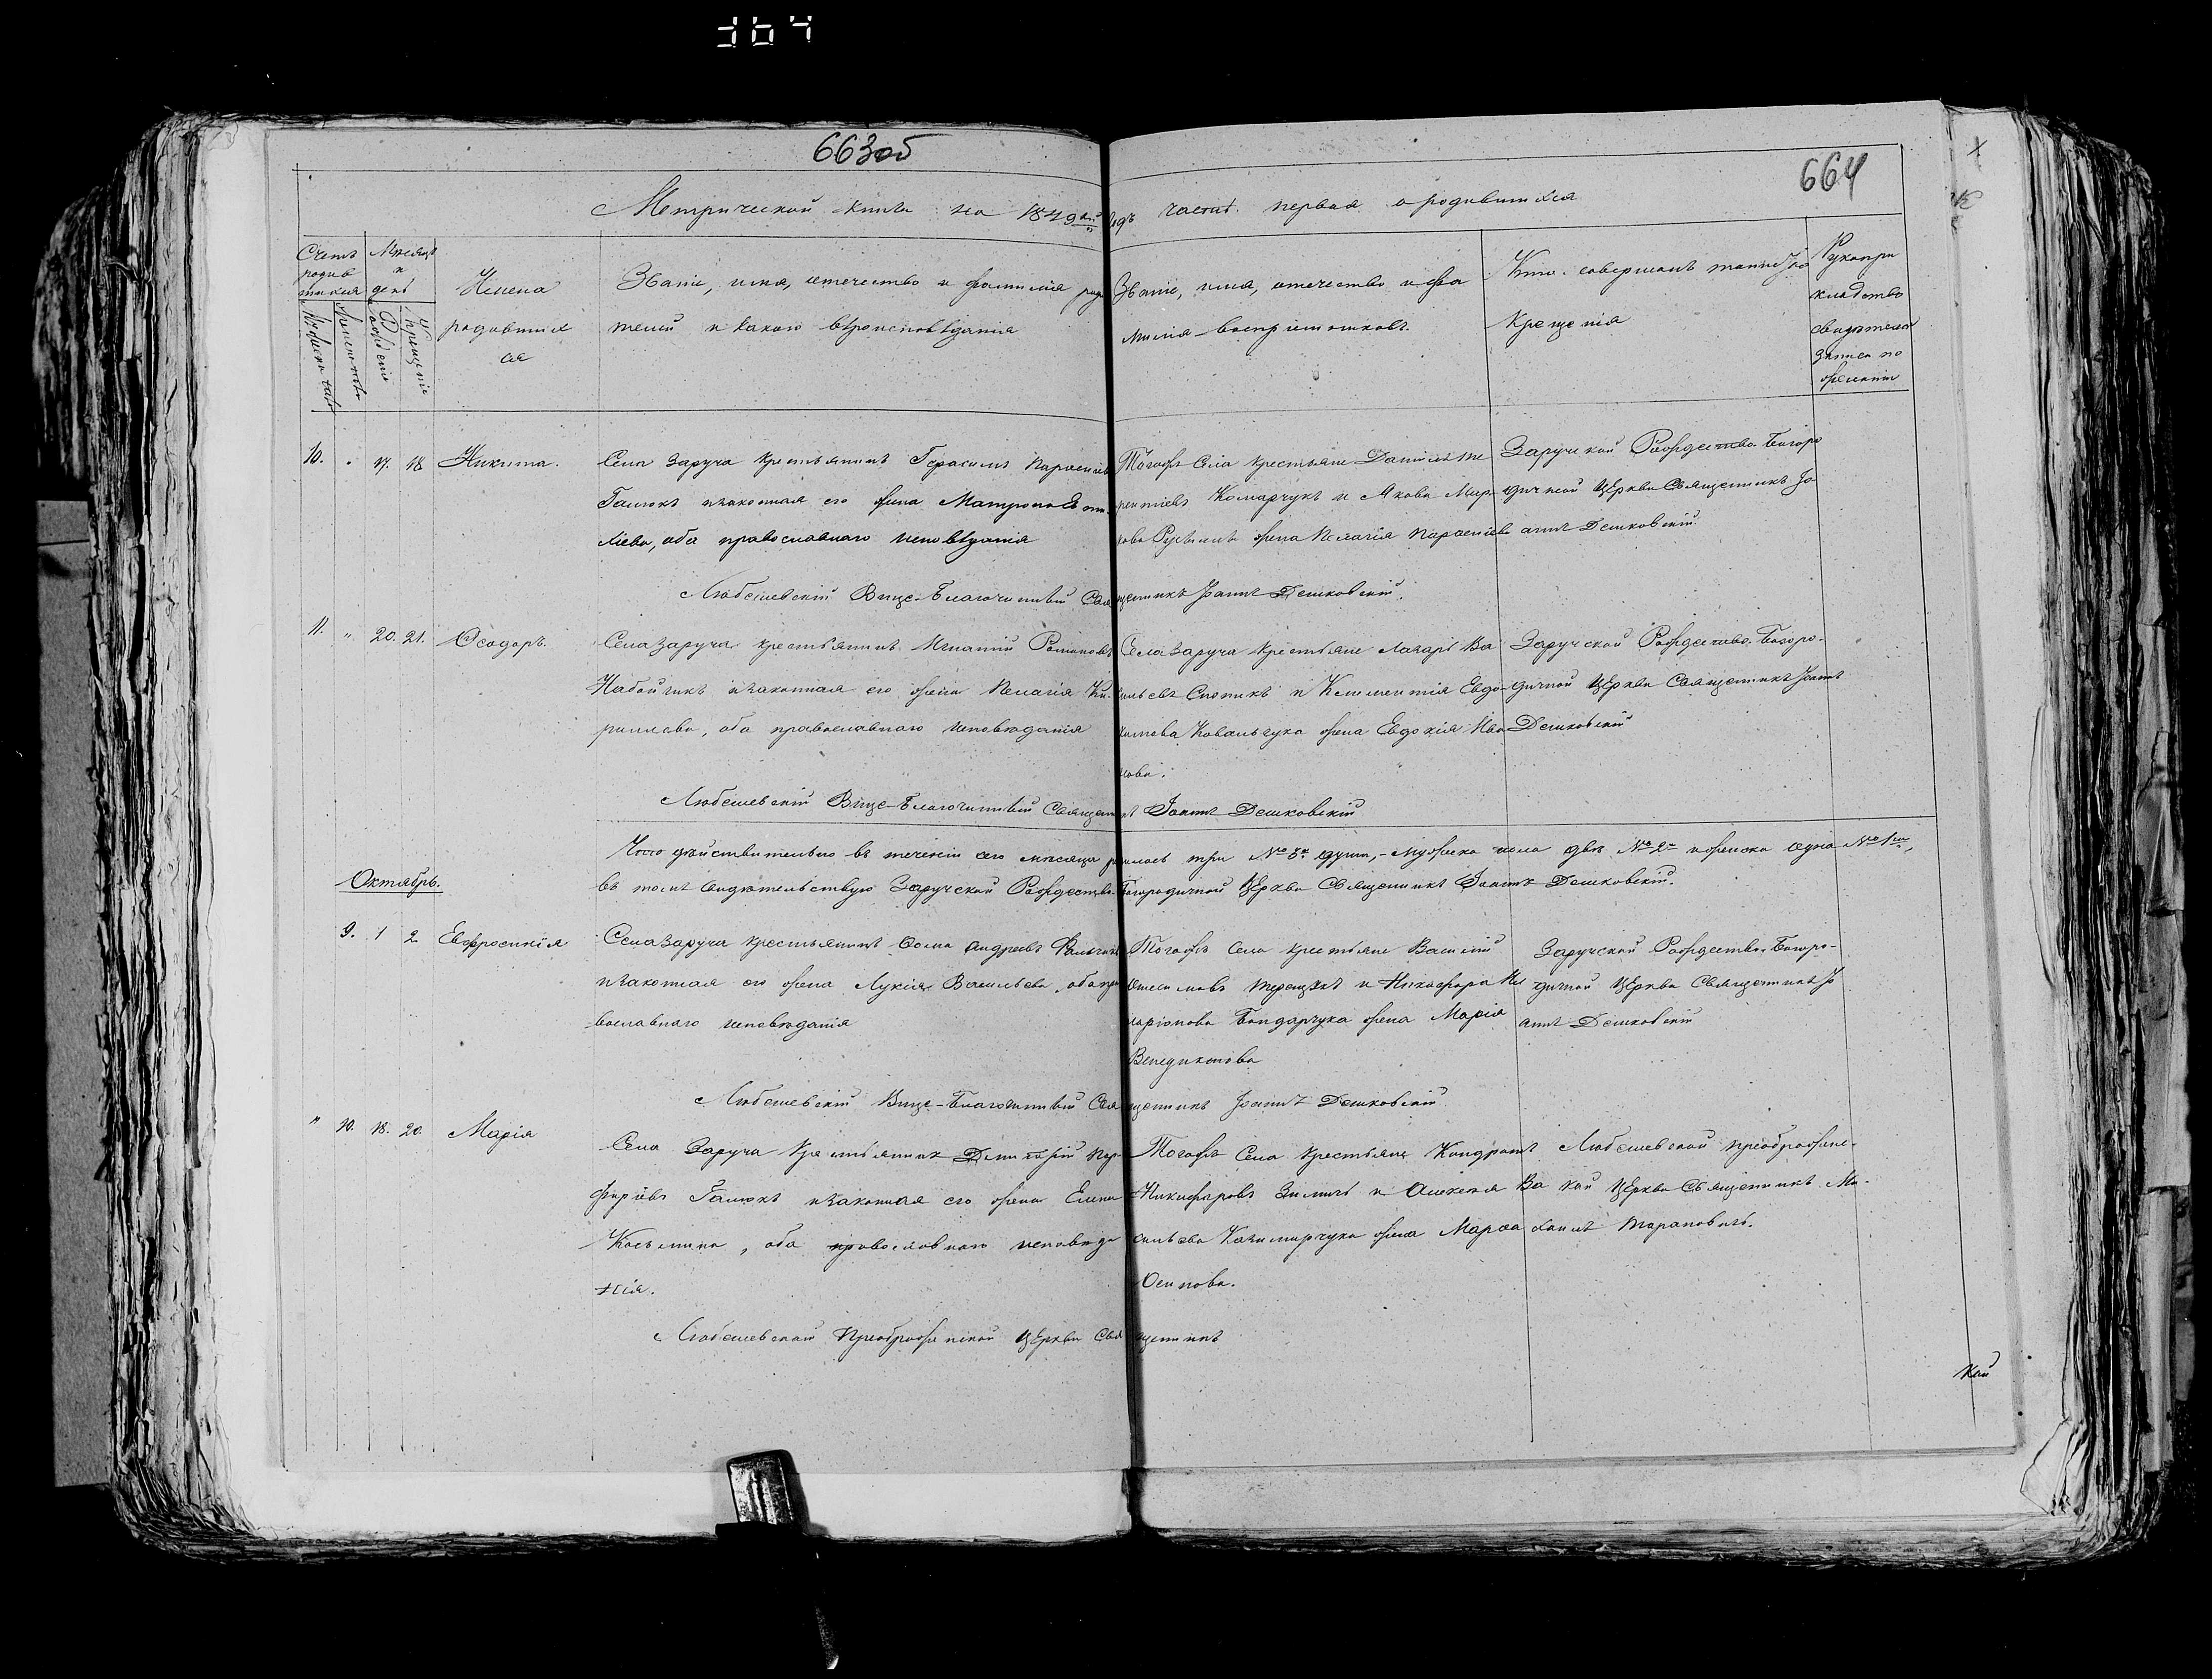 664
663об
Метрической книги на 1849й годъ часть первая о родившихся
Счетъ родившихся
Мужеска
Женска
Мѣсяцъ и день
Рожденія
Крещенія
Имена
родивших
ся
Званіе, имя, отечество и фамилія роди
телей и какого вѣроисповѣданія
Званіе, имя, отечество и фа
милія воспріемниковъ.
Кто совершалъ таинство
Крещенія
Рукопри
кладство
свидѣтелей
записи по
желанію
10. 17. 18 Никита.
Села Заруча крестьянинъ Герасимъ
Галюкъ и законная его жена Матрона
лієва, оба православнаго исповѣданія
Тогожъ Села крестьяне Даніилъ Те
рентіевъ Комарчукъ и Якова Мир
жена Пелагія
Заручской Рождество-Богоро
дичной Церкви Священникъ Іо
аннъ Дешковскій.
Любешевскій Вице-Благочинный Священникъ Іоаннъ Дешковскій.
11. " 20. 21. Ѳеодоръ.
Села Заруча крестьянинъ Игнатій Романовъ
Набойчикъ и законная его жена Пелагія Ки
риллова, оба православнаго исповѣданія
Села Заруча крестьяне Лазарь Ва
сильевъ и Климентія Евдо
кимова Ковальчука жена Евдокія Ива
нова.
Заручской Рождество-Богоро-
дичной Церкви Священникъ Іоаннъ
Дешковскій
Любешевскій Вице-Благочинный Священникъ Іоаннъ Дешковскій
Что дѣйствительно въ теченіи сего мѣсяца родилось три № 3й души,- мужеска пола двѣ № 2 и женска одна № 1,
въ томъ свидѣтельствую Заручской Рождество-Богородичной Церкви Священникъ Іоаннъ Дешковскій.
Октябрь.
9. 1 2 Евфросинія
Села Заруча крестьянинъ Ѳома Андреевъ
и законная его жена Лукія Васильева, оба пра
вославнаго исповѣданія
Тогожъ Села крестьяне Василій
Онисимовъ Терещукъ и Никифора Ил
ларіонова Бондарчука жена Марія
Венедиктова
Заручской Рождество-Богоро-
дичной Церкви Священникъ Іо
аннъ Дешковскій
Любешевскій Вице-Благочинный Священникъ Іоаннъ Дешковскій
" 10. 18. 20. Марія
Села Заруча Крестьянинъ Пор
фиріевъ Галюкъ и законная его жена Елена
Косьмина, оба православнаго исповѣда
нія.
Тогожъ Села Крестьяне Кондратъ
Никифоровъ Зимичъ и Алексея Ва
сильева Казимирчука жена Марѳа
Осипова.
Любешевской Преображенс-
кой Церкви Священникъ Ми-
хаилъ Тарановичъ.
Любешевской Преображенской Церкви Священникъ
кой